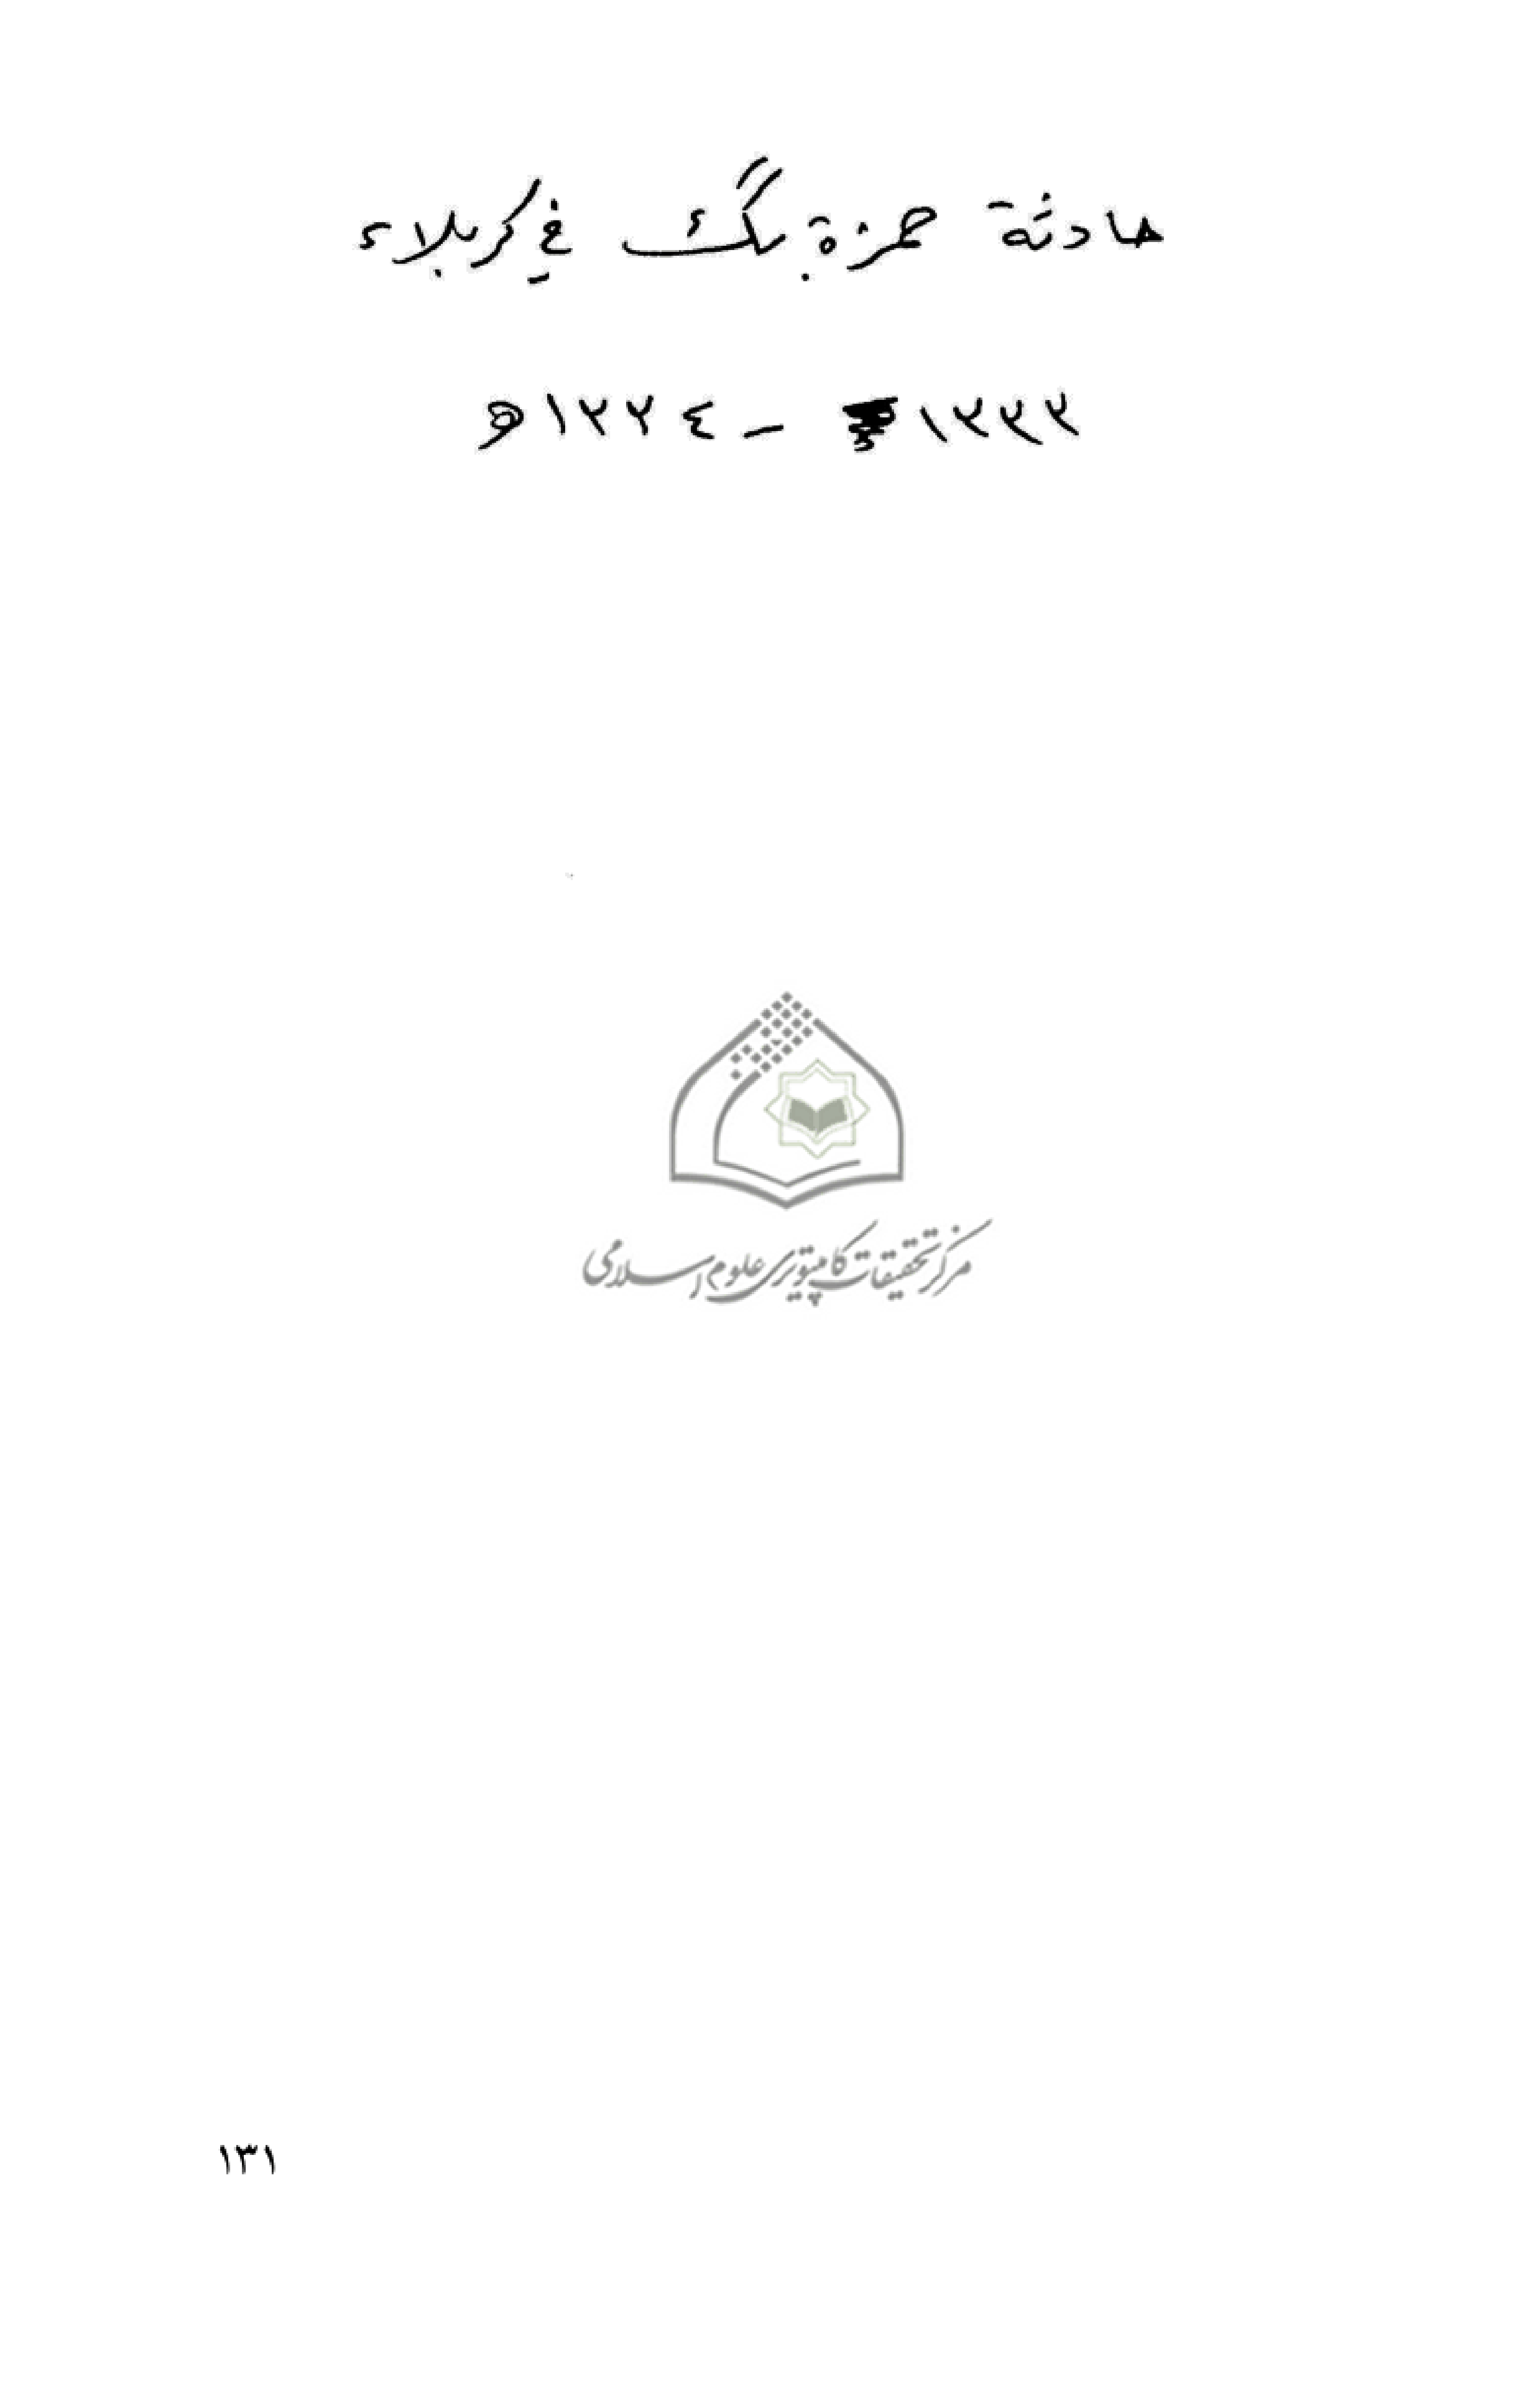 حادثة حمزة بگ في كربلاء
١٣٣٣ - ١٣٣٤ھ
مرکز تحقیقات کامپیوتری علوم اسلامی
١٣١